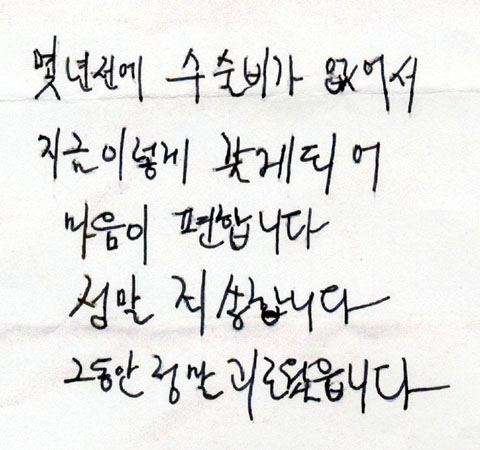 몇년전에 수술비가 없어서
지금이렇게 찾게되어
마음이 편합니다
정말 죄송합니다
그동안 정말 괴로웠읍니다